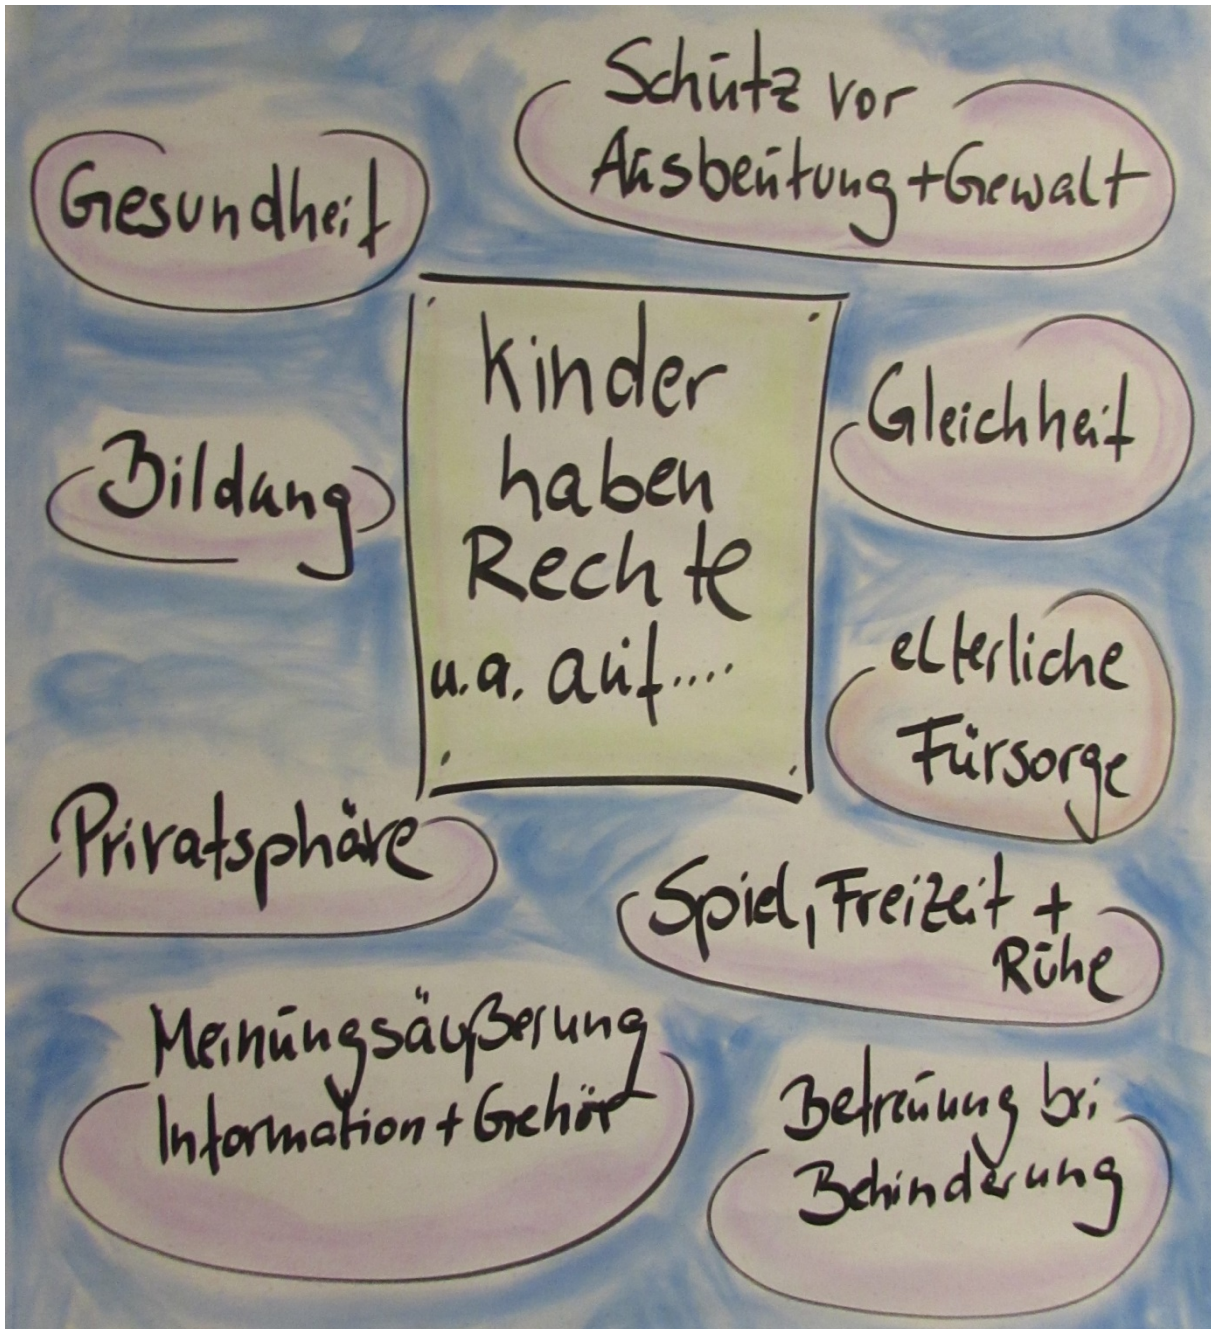 Gesundheit
Schutz vor
Ausbeutung + Gewalt
Kinder
haben
Rechte
u.a. auf....
Bildung
Gleichheit
elterliche
Fürsorge
Privatsphäre
Spiel, Freizeit +
Ruhe
Meinungsäußerung
Information + Gehör
Betreuung bei
Behinderung